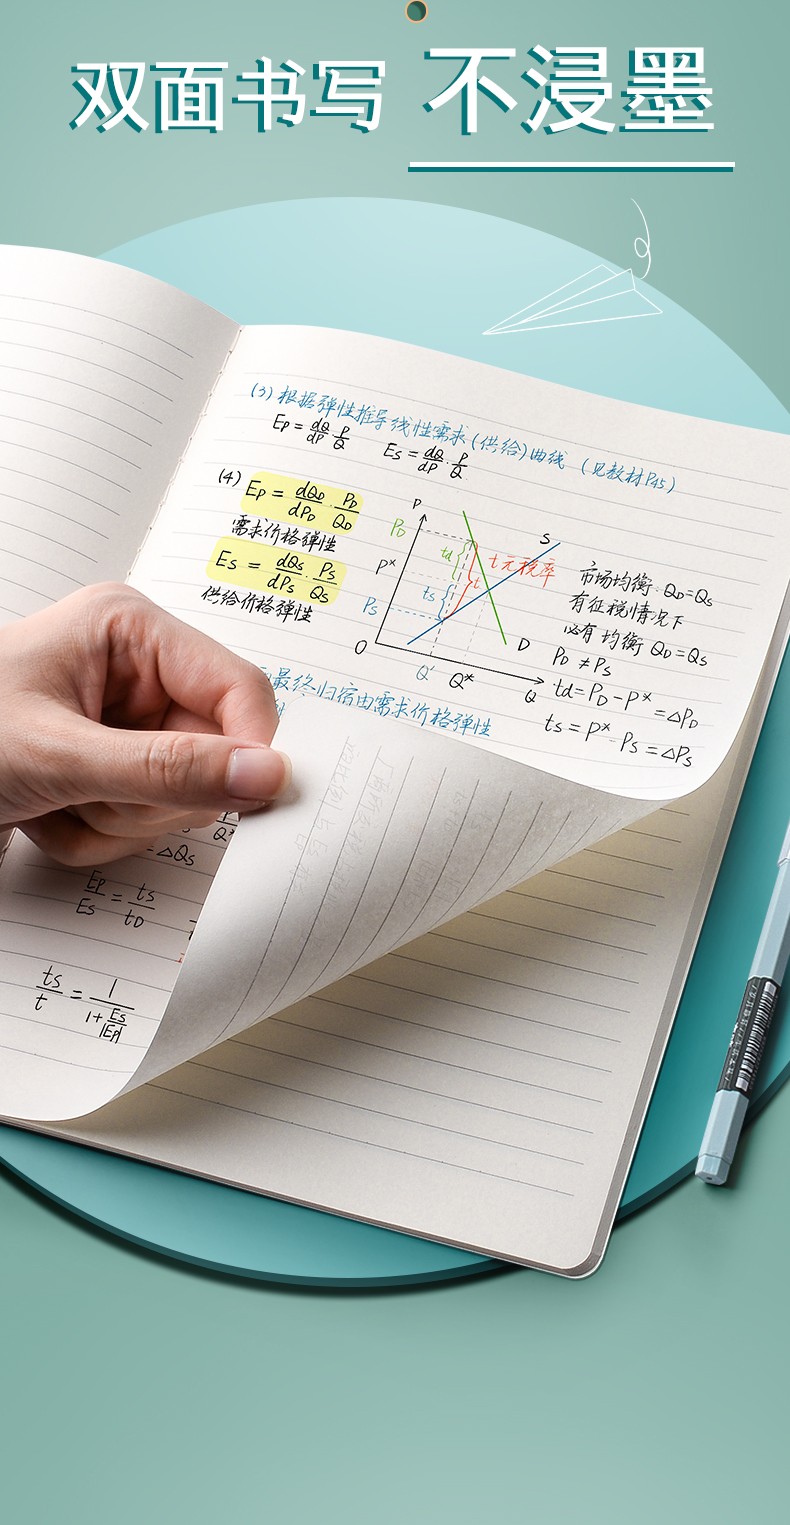 双面书写 不浸墨
(3) 根据弹性推导线性需求(供给)曲线 (见教材P45)
Ep = dQ/dP · P/Q  Es = dQ/dP · P/Q
(4) Ep = dQD/dPD · PD/QD
需求价格弹性
Es = dQs/dPs · Ps/Qs
供给价格弹性
P
PD
P*
Ps
O
td
ts
t
t元税率
S
D
Q'
Q*
Q
市场均衡: QD=Qs
有征税情况下
必有均衡 QD=Qs
PD ≠ Ps
td=PD-P*=△PD
ts=P*-Ps=△Ps
最终归宿由需求价格弹性
=△Qs
Ep/Es = ts/tD
ts/t = 1/(1+Es/|Ep|)